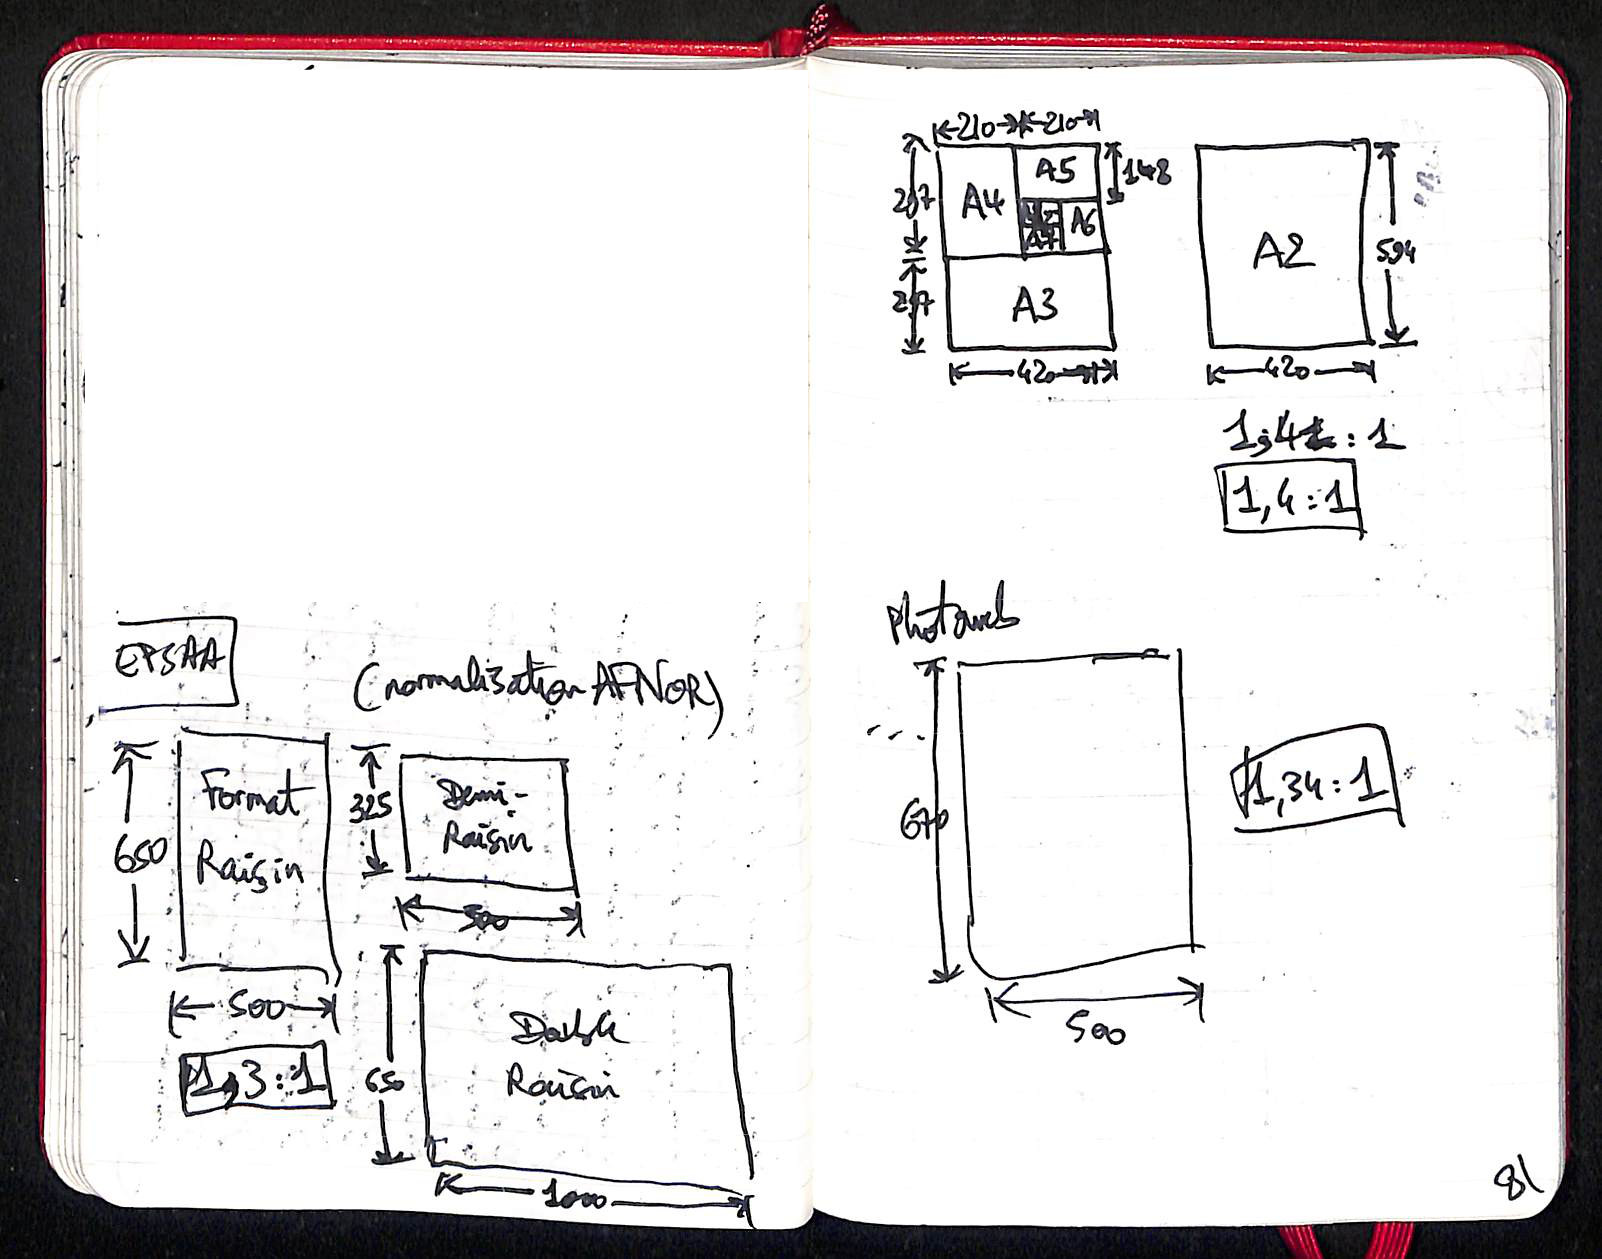 EPSAA
(normalisation AFNOR)
Format
Raisin
650
500
1,3:1
325
Demi-
Raisin
500
650
Double
Raisin
1000
210
210
297
297
A4
A5
148
A6
A7
A3
420
A2
594
420
1,41:1
1,4:1
Photoweb
670
500
1,34:1
81